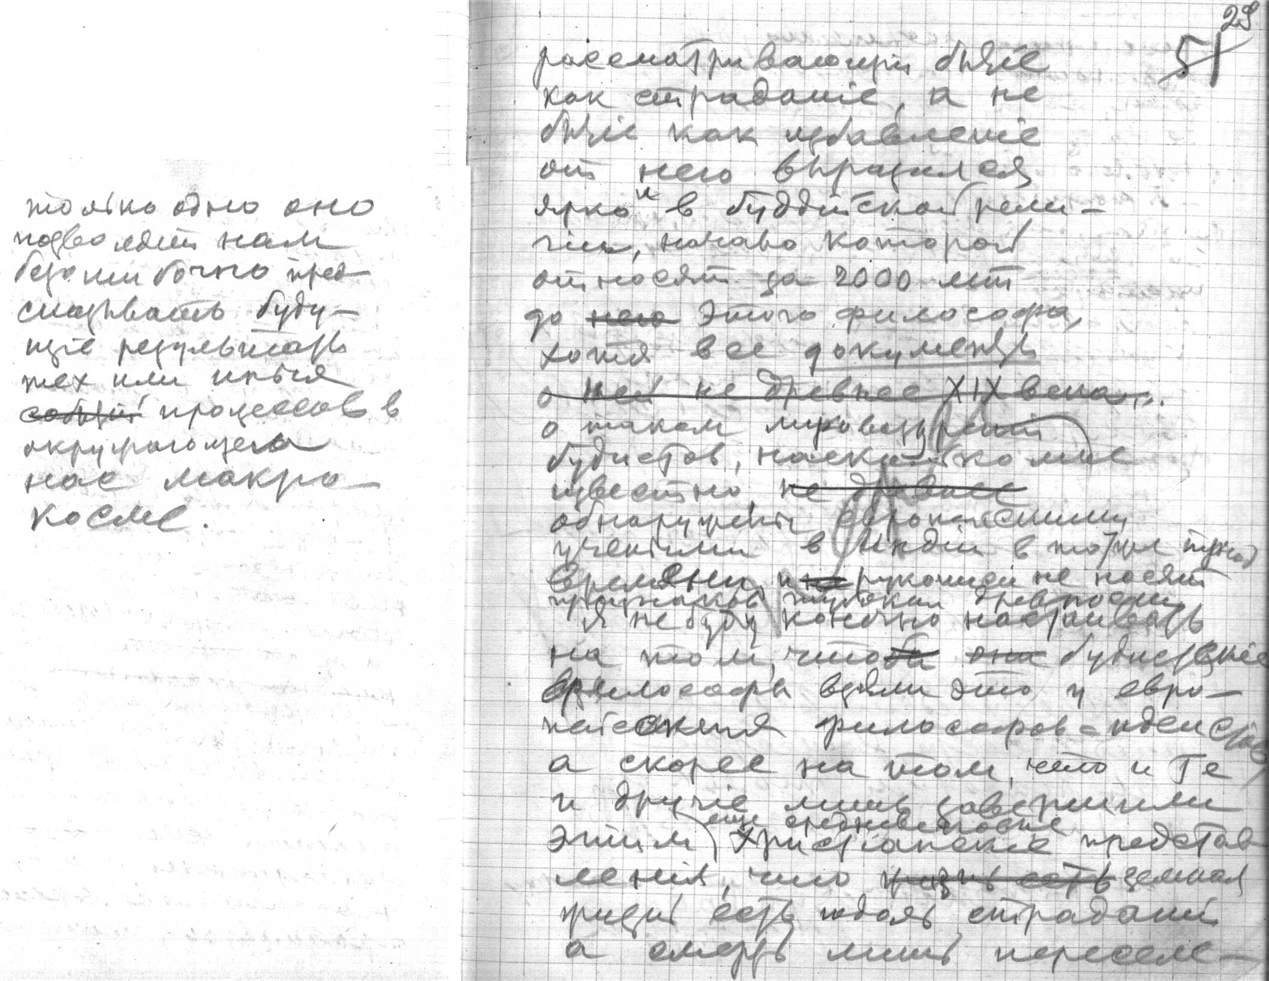 только одно оно
позволяет нам
безошибочно пред-
сказывать буду-
щіе результаты
тех или иных
событій процессов в
окружающего
нас макро-
косме.
29
51
рассматривающій бытіе
как страданіе, а не
бытіе как избавленіе
от него выразился
ярко и в буддійской рели-
гіи, начало которой
относят за 2000 лет
до него этого философа,
хотя все документы
о ней не древнее XIX века.
о таком міровоззреніи
будистов, насколько мне
известно, не древнее
обнаружены европейскими
учеными в Индіи в тоже
время и рукописи не носят
признаков глубокой древности
Я не буду конечно настаивать
на том, чтобы они будистскіе
философы взяли это у евро-
пейских философов-идеистов
а скорее на том, что и те
и другіе лишь завершили
еще средневековые
этим христіанскіе представ
ленія, что жизнь есть земная
жизнь есть страданій
а смерть лишь переселе-